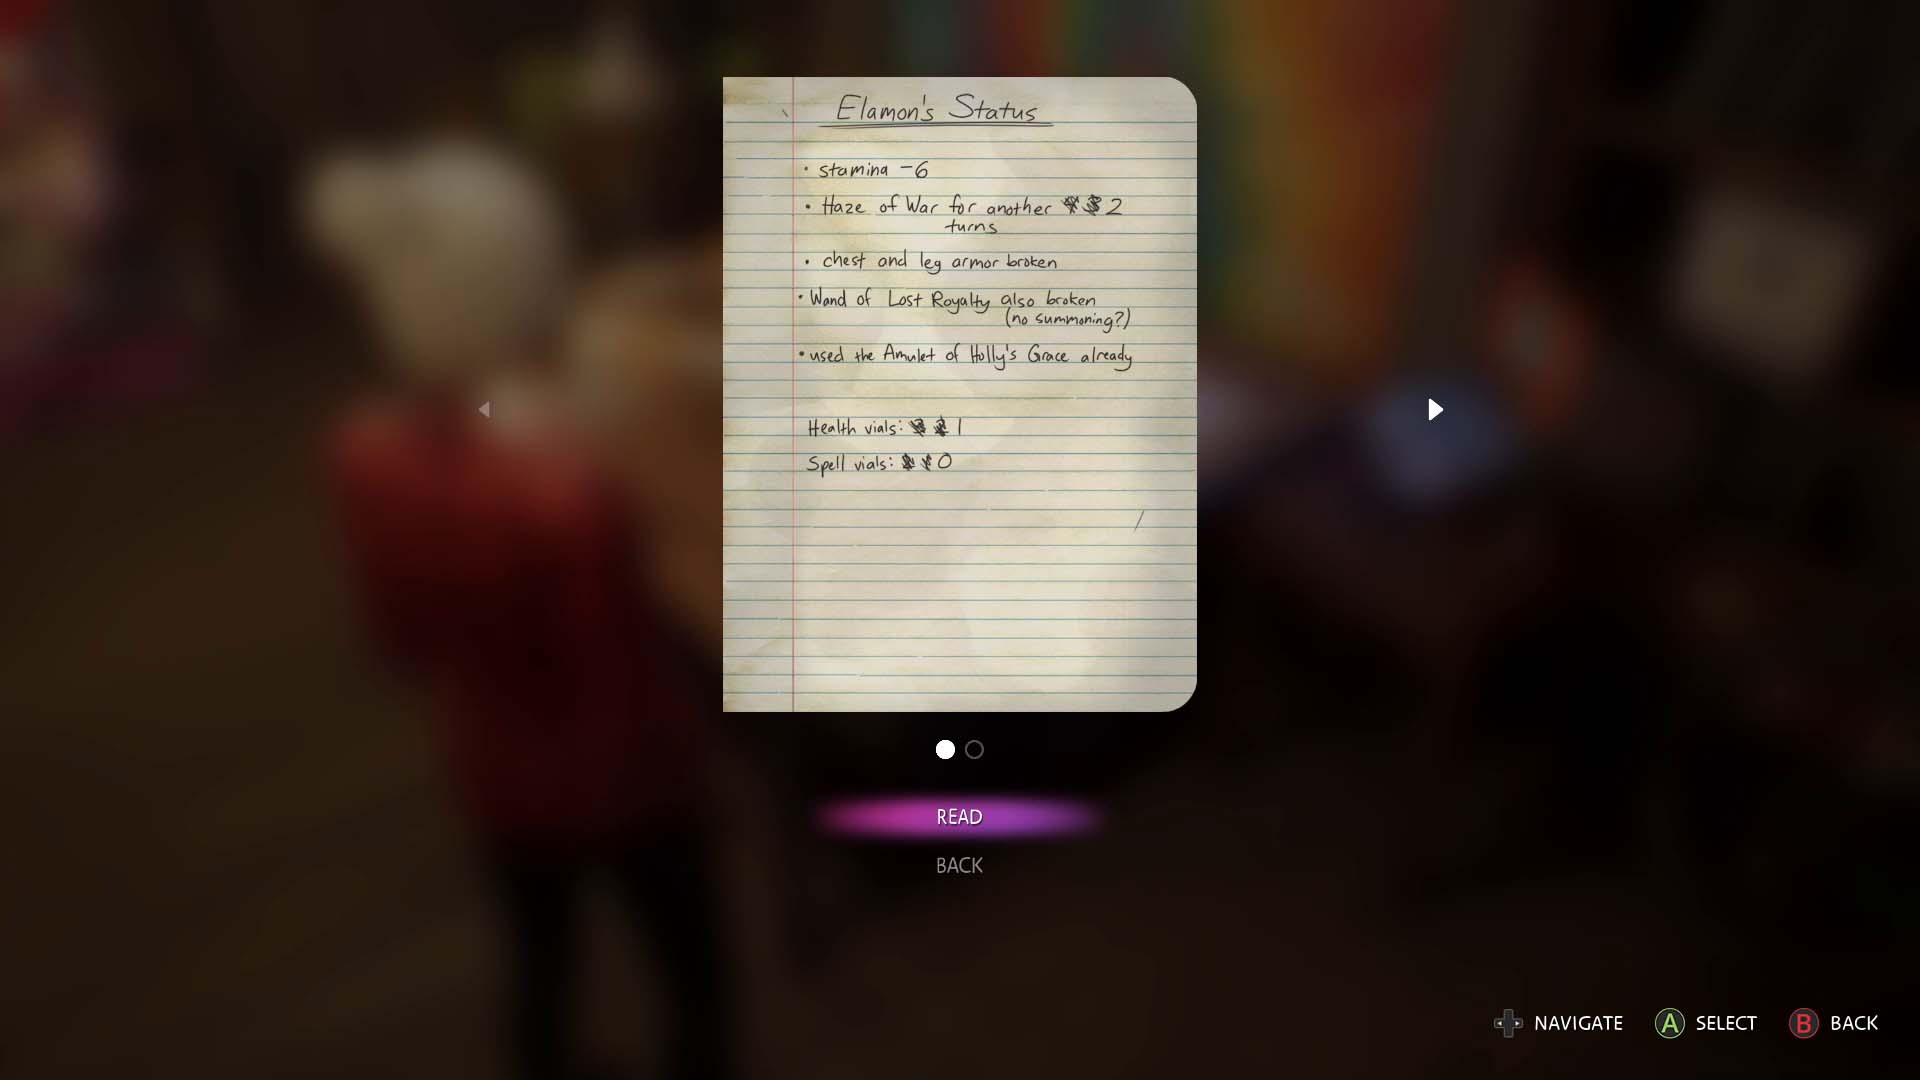 Elamon's Status
• stamina -6
• Haze of War for another 4 3 2
turns
• chest and leg armor broken
• Wand of Lost Royalty also broken
(no summoning?)
• used the Amulet of Holly's Grace already
Health vials: 1
Spell vials: 0
READ
BACK
NAVIGATE A SELECT B BACK